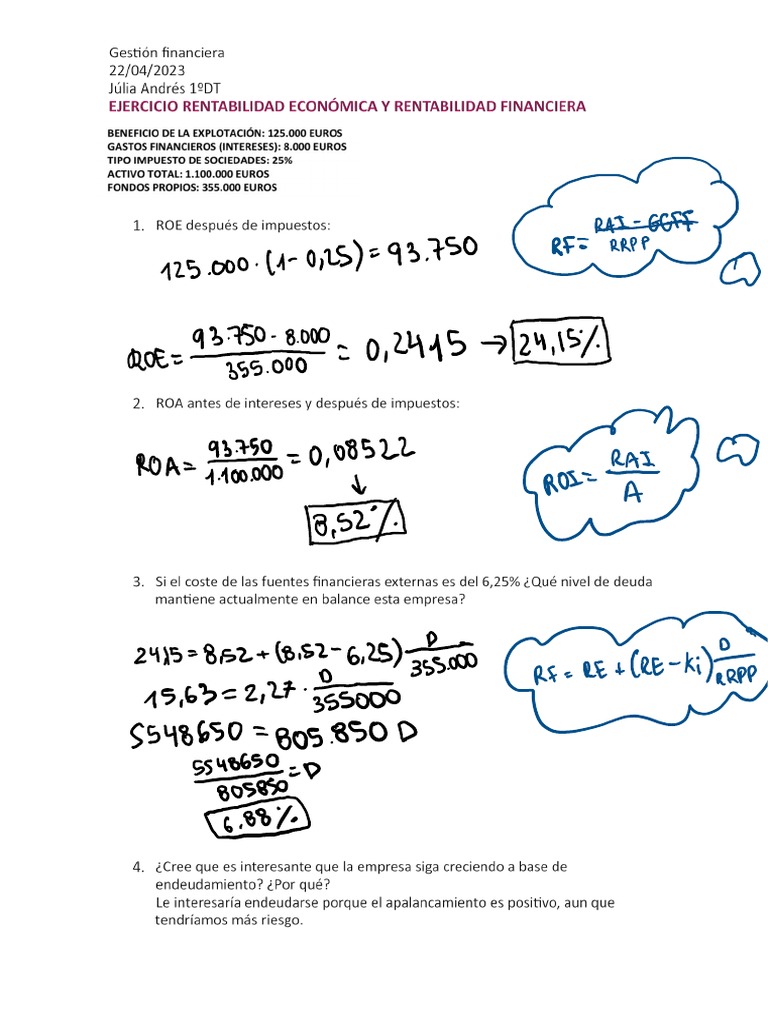 Gestión financiera
22/04/2023
Júlia Andrés 1ºDT
EJERCICIO RENTABILIDAD ECONÓMICA Y RENTABILIDAD FINANCIERA
BENEFICIO DE LA EXPLOTACIÓN: 125.000 EUROS
GASTOS FINANCIEROS (INTERESES): 8.000 EUROS
TIPO IMPUESTO DE SOCIEDADES: 25%
ACTIVO TOTAL: 1.100.000 EUROS
FONDOS PROPIOS: 355.000 EUROS
1. ROE después de impuestos:
125.000 · (1 - 0,25) = 93.750
RF = RAI - GGFF / RRPP
ROE = 93.750 - 8.000 / 355.000 = 0,2415 → 24,15%
2. ROA antes de intereses y después de impuestos:
ROA = 93.750 / 1.100.000 = 0,08522
↓
8,52%
ROI = RAI / A
3. Si el coste de las fuentes financieras externas es del 6,25% ¿Qué nivel de deuda
mantiene actualmente en balance esta empresa?
24,15 = 8,52 + (8,52 - 6,25) D / 355.000
RF = RE + (RE - Ki) D / RRPP
15,63 = 2,27 · D / 355000
5548650 = 805.850 D
5548650 / 805850 = D
6,88%
4. ¿Cree que es interesante que la empresa siga creciendo a base de
endeudamiento? ¿Por qué?
Le interesaría endeudarse porque el apalancamiento es positivo, aun que
tendríamos más riesgo.